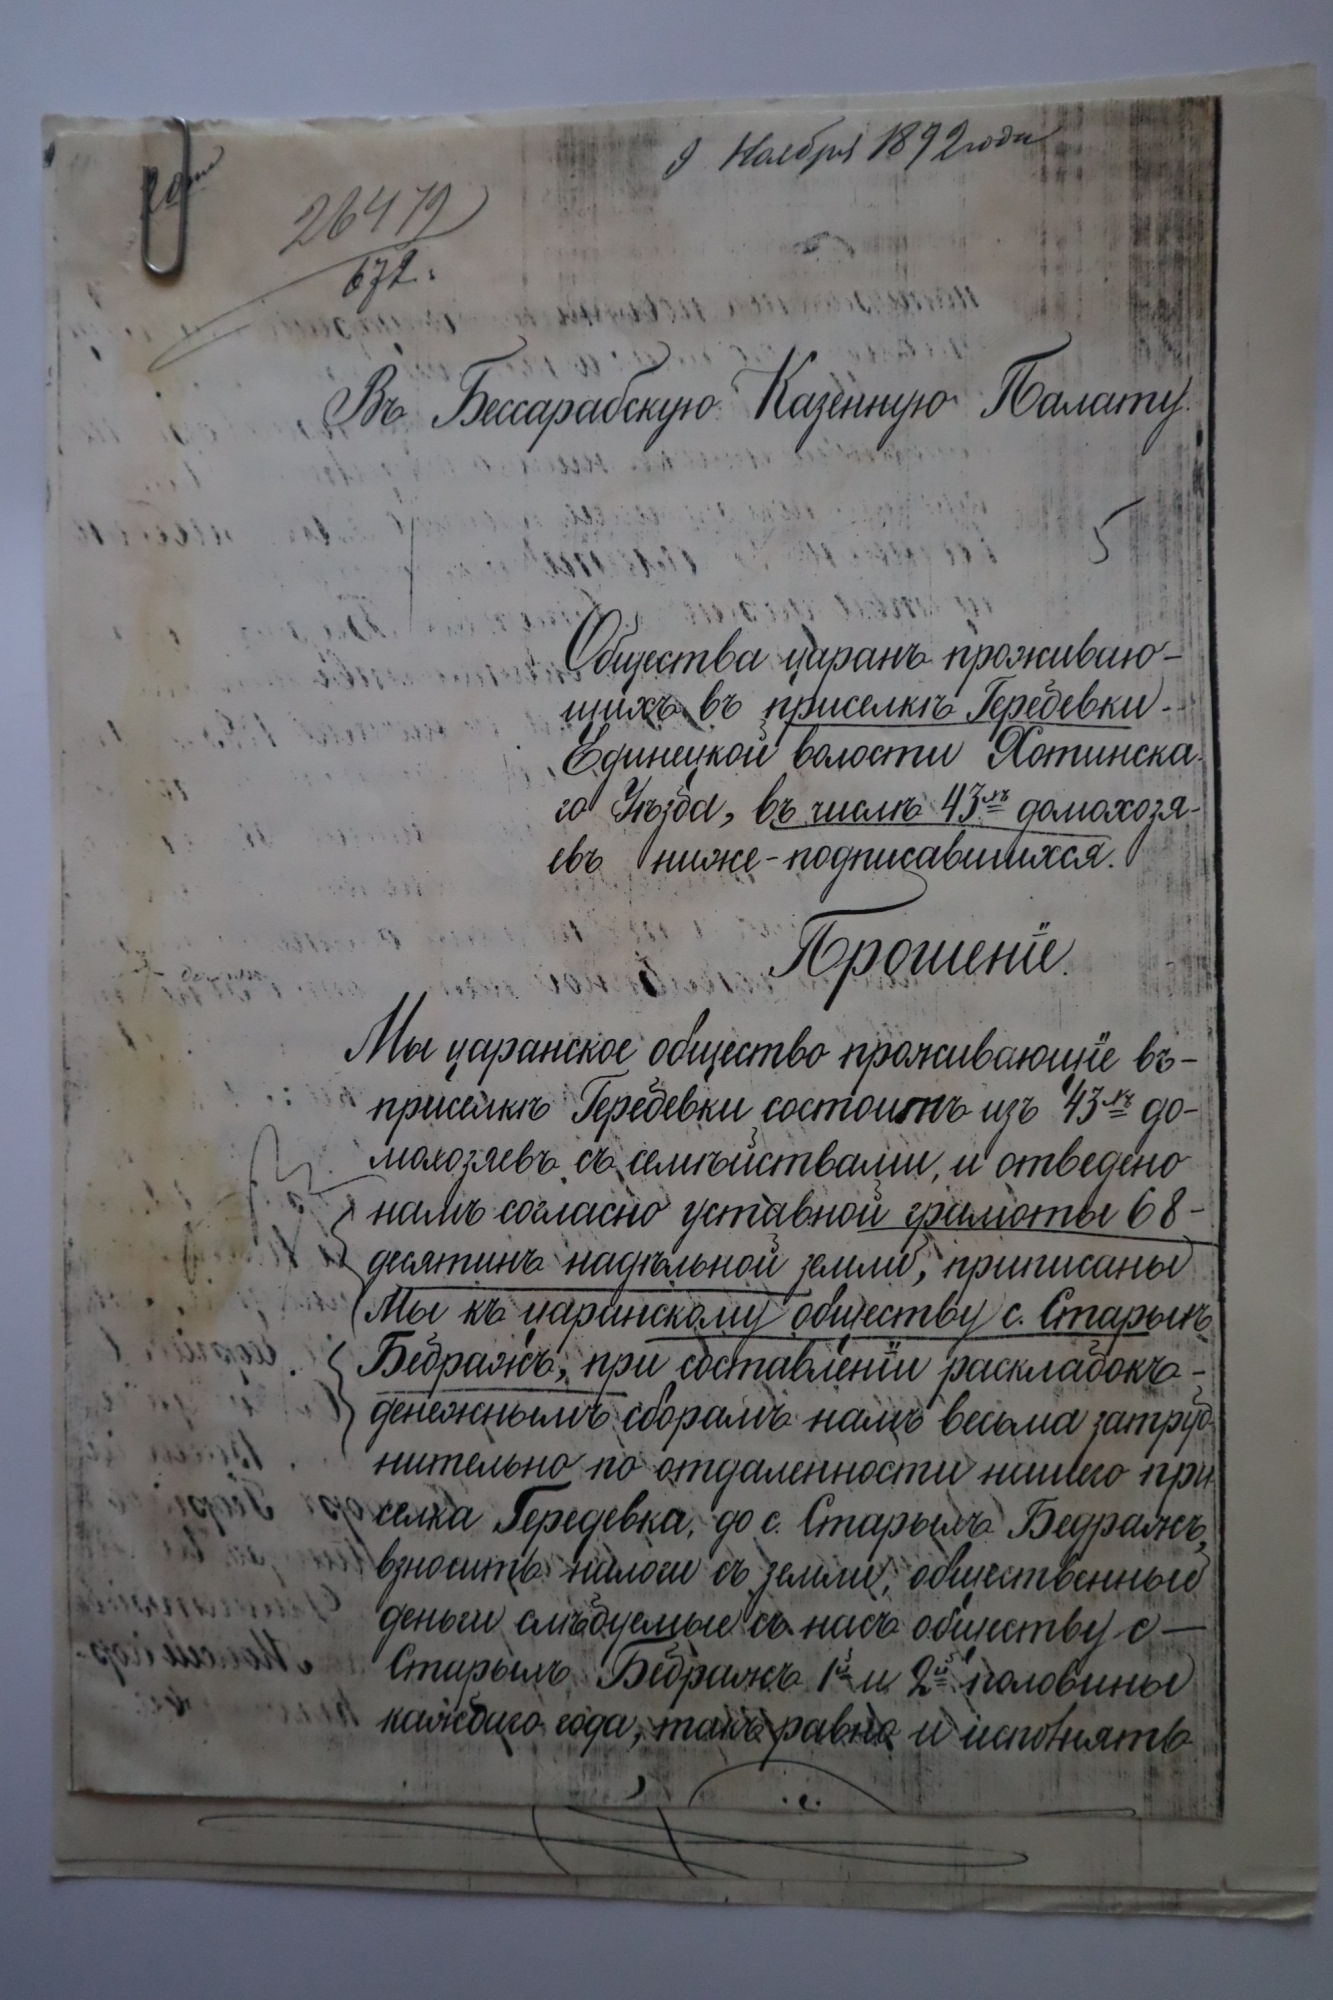 9 Ноября 1892 года
26479
672.
Въ Бессарабскую Казенную Палату.
5
Общества царанъ проживаю-
щихъ въ приселкѣ Гередевки
Единецкой волости Хотинска-
го Уѣзда, въ числѣ 43хъ домохозя-
евъ ниже-подписавшихся.
Прошеніе.
Мы царанское общество проживающіе въ-
приселкѣ Гередевки состоитъ изъ 43хъ до-
мохозяевъ съ семѣйствами, и отведено
намъ согласно уставной грамоты 68-
десятинъ надѣльной земли, приписаны
Мы къ царанскому обществу с. Старыхъ
Бедражъ, при составленіи раскладокъ-
денежнымъ сборамъ намъ весьма затруд
нительно по отдаленности нашего при
селка Гередевка, до с. Старымъ Бедражъ,
взносить налоги съ земли, общественные
деньги слѣдуемые съ насъ обществу с—
Старымъ Бедражъ 1й и 2й половины
каждаго года, такъ равно и исполнять